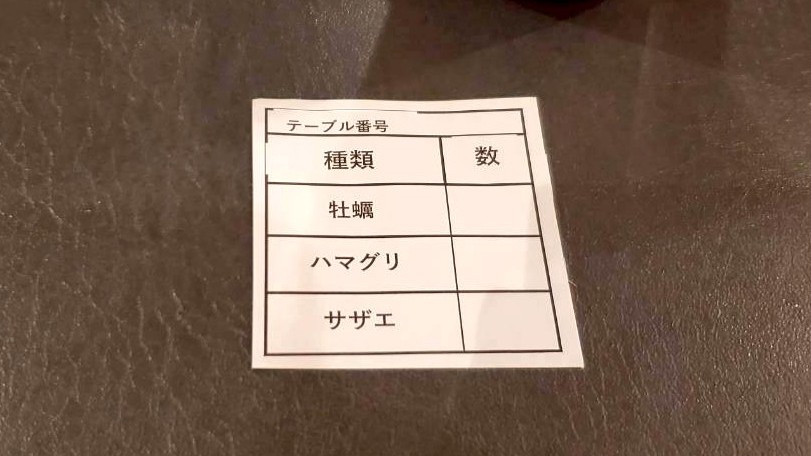 テーブル番号
種類 数
牡蠣
ハマグリ
サザエ